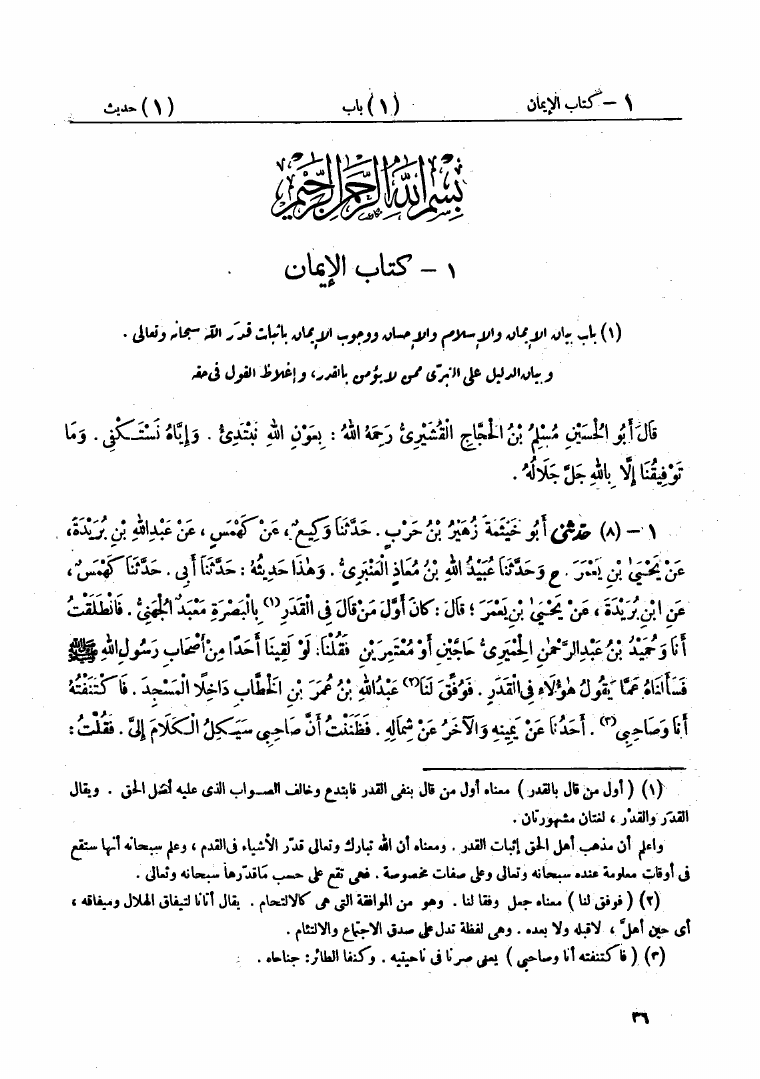 ١ – كتاب الإيمان (١) باب (١) حديث
بسم الله الرحمن الرحيم
١ – كتاب الإيمان
(١) باب بيان الإيمان والإسلام والإحسان ووجوب الإيمان بإثبات قدر الله سبحانه وتعالى .
وبيان الدليل على التبرّى ممن لا يؤمن بالقدر، وإغلاظ القول فى حقه
قَالَ أَبُو الْحُسَيْنِ مُسْلِمُ بْنُ الْحَجَّاجِ الْقُشَيْرِىُّ رَحِمَهُ اللهُ : بِعَوْنِ اللهِ نَبْتَدِئُ . وَإِيَّاهُ نَسْتَكْفِى . وَمَا
تَوْفِيقُنَا إِلَّا بِاللهِ جَلَّ جَلَالُهُ .
١ – (٨) حَدَّثَنِى أَبُو خَيْثَمَةَ زُهَيْرُ بْنُ حَرْبٍ . حَدَّثَنَا وَكِيعٌ ، عَنْ كَهْمَسٍ ، عَنْ عَبْدِ اللهِ بْنِ بُرَيْدَةَ ،
عَنْ يَحْيَىٰ بْنِ يَعْمَرَ . ح وَحَدَّثَنَا عُبَيْدُ اللهِ بْنُ مُعَاذٍ الْعَنْبَرِىُّ . وَهٰذَا حَدِيثُهُ : حَدَّثَنَا أَبِى . حَدَّثَنَا كَهْمَسٌ ،
عَنِ ابْنِ بُرَيْدَةَ ، عَنْ يَحْيَىٰ بْنِ يَعْمَرَ ؛ قَالَ : كَانَ أَوَّلَ مَنْ قَالَ فِى الْقَدَرِ (١) بِالْبَصْرَةِ مَعْبَدٌ الْجُهَنِىُّ . فَانْطَلَقْتُ
أَنَا وَحُمَيْدُ بْنُ عَبْدِ الرَّحْمٰنِ الْحِمْيَرِىُّ حَاجَّيْنِ أَوْ مُعْتَمِرَيْنِ فَقُلْنَا: لَوْ لَقِينَا أَحَدًا مِنْ أَصْحَابِ رَسُولِ اللهِ ﷺ
فَسَأَلْنَاهُ عَمَّا يَقُولُ هٰؤُلَاءِ فِى الْقَدَرِ . فَوُفِّقَ لَنَا (٢) عَبْدُ اللهِ بْنُ عُمَرَ بْنِ الْخَطَّابِ دَاخِلًا الْمَسْجِدَ . فَاكْتَنَفْتُهُ
أَنَا وَصَاحِبِى (٣) . أَحَدُنَا عَنْ يَمِينِهِ وَالْآخَرُ عَنْ شِمَالِهِ . فَظَنَنْتُ أَنَّ صَاحِبِى سَيَكِلُ الْكَلَامَ إِلَىَّ . فَقُلْتُ :
(١) ( أول من قال بالقدر ) معناه أول من قال بنفى القدر فابتدع وخالف الصواب الذى عليه أهل الحق . ويقال
القدَر والقدْر ، لغتان مشهورتان .
واعلم أن مذهب أهل الحق إثبات القدر . ومعناه أن الله تبارك وتعالى قدّر الأشياء فى القدم ، وعلم سبحانه أنها ستقع
فى أوقات معلومة عنده سبحانه وتعالى وعلى صفات مخصوصة . فهى تقع على حسب ماقدّرها سبحانه وتعالى .
(٢) ( فوفق لنا ) معناه جعل وفقا لنا . وهو من الموافقة التى هى كالالتحام . يقال أتانا لتيفاق الهلال وميفاقه ،
أى حين أهلّ ، لا قبله ولا بعده . وهى لفظة تدل على صدق الاجتماع والالتئام .
(٣) ( فاكتنفته أنا وصاحبى ) يعنى صرنا فى ناحيتيه . وكنفا الطائر : جناحاه .
٣٦